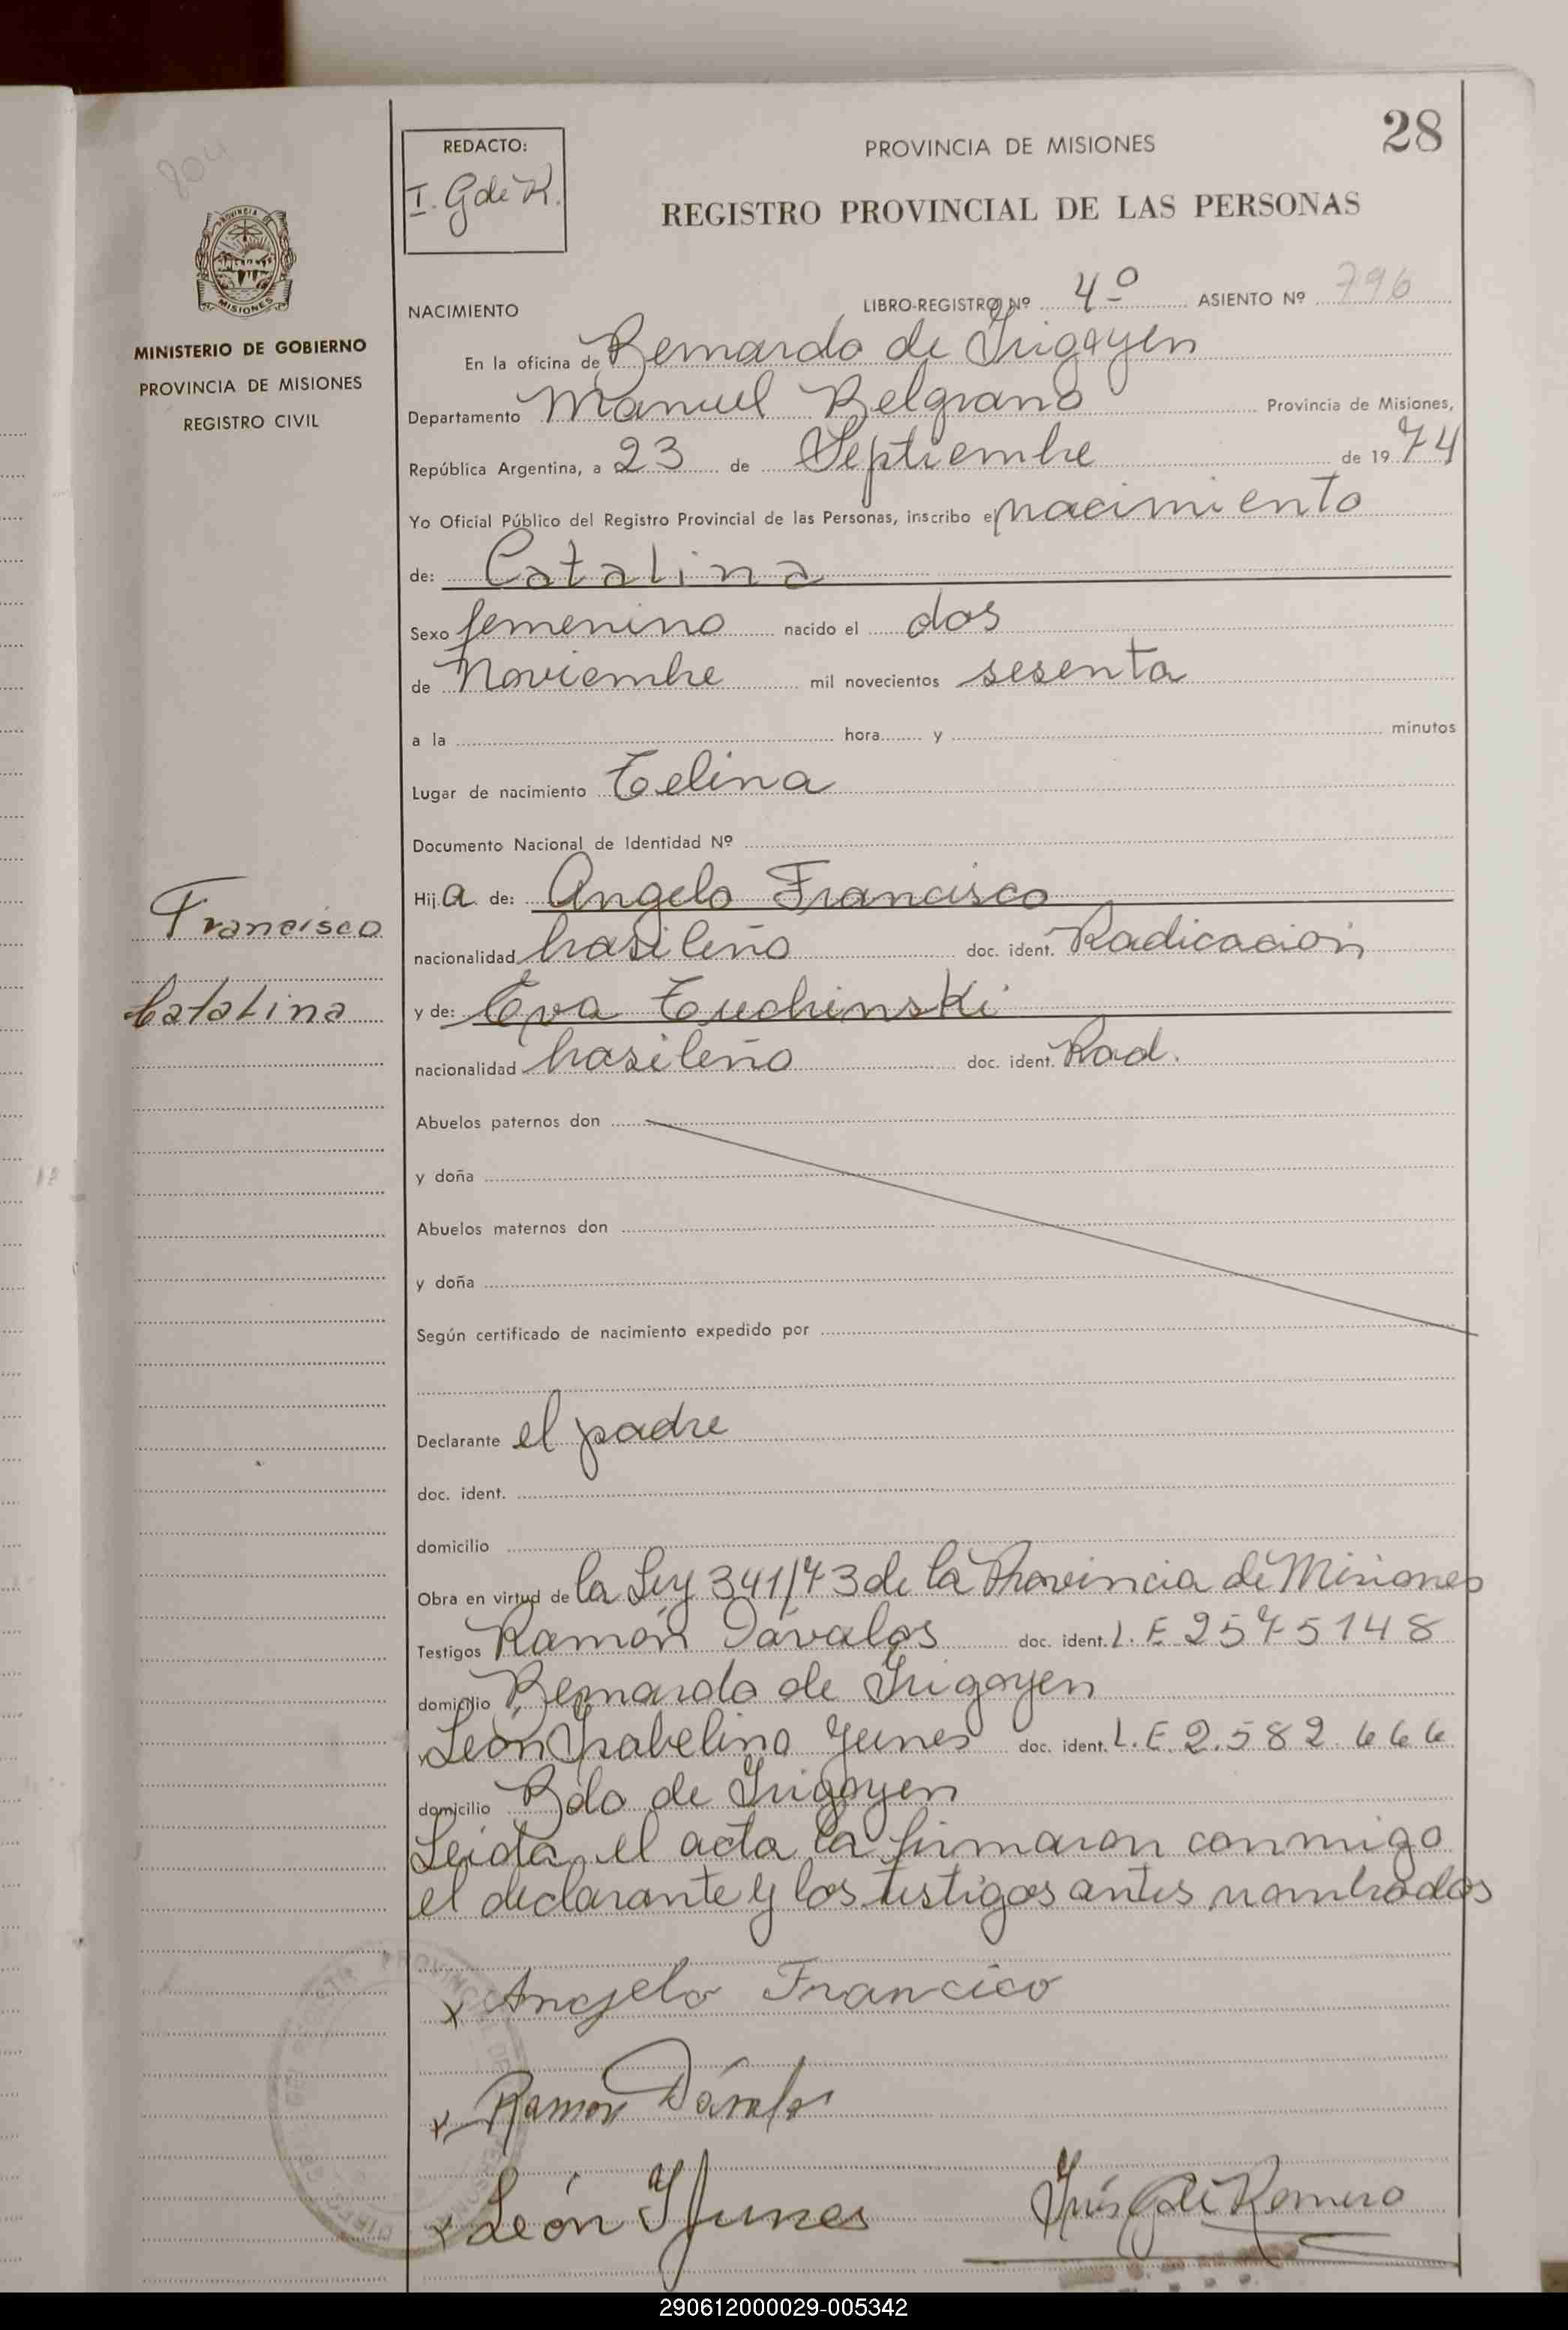 28
804
REDACTO:
I. G de R.
PROVINCIA DE MISIONES
REGISTRO PROVINCIAL DE LAS PERSONAS
PROVINCIA DE
MISIONES
MINISTERIO DE GOBIERNO
PROVINCIA DE MISIONES
REGISTRO CIVIL
NACIMIENTO LIBRO-REGISTRO Nº 4º ASIENTO Nº 796
En la oficina de Bernardo de Irigoyen
Departamento Manuel Belgrano Provincia de Misiones,
República Argentina, a 23 de Septiembre de 1974
Yo Oficial Público del Registro Provincial de las Personas, inscribo el nacimiento
de: Catalina
Sexo femenino nacido el dos
de Noviembre mil novecientos sesenta
a la hora y minutos
Lugar de nacimiento Celina
Documento Nacional de Identidad Nº
Hija de: Angelo Francisco
nacionalidad brasileño doc. ident. Radicación
y de: Eva Cuchinski
nacionalidad brasileño doc. ident. Rad.
Francisco
Catalina
Abuelos paternos don
y doña
Abuelos maternos don
y doña
Según certificado de nacimiento expedido por
Declarante el padre
doc. ident.
domicilio
Obra en virtud de la Ley 341/73 de la Provincia de Misiones
Testigos Ramón Dávalos doc. ident. L.E 2575148
domicilio Bernardo de Irigoyen
León Isabelino Yunes doc. ident. L.E. 2.582.666
domicilio Bdo de Irigoyen
Leida el acta la firmaron conmigo
el declarante y los testigos antes nombrados
x Angelo Francico
x Ramon Dávalos
x León I Yunes
Inés G de Romero
290612000029-005342